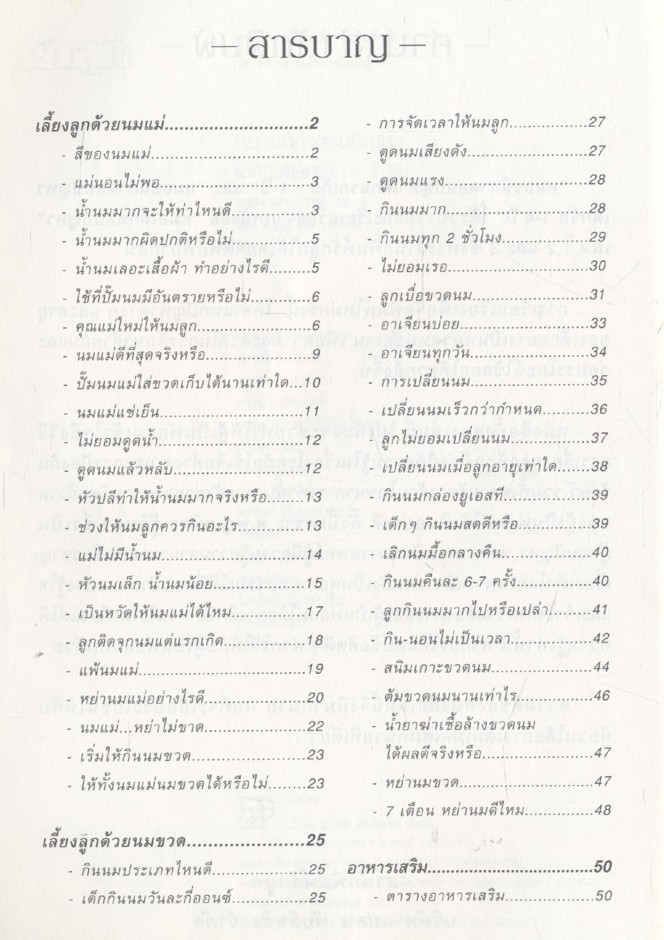 – สารบาญ –
เลี้ยงลูกด้วยนมแม่............................2
- สีของนมแม่............................2
- แม่นอนไม่พอ............................2
- น้ำนมมากจะให้ท่าไหนดี............................3
- น้ำนมมากผิดปกติหรือไม่............................5
- น้ำนมเลอะเสื้อผ้า ทำอย่างไรดี............................5
- ใช้ที่ปั๊มนมมีอันตรายหรือไม่............................6
- คุณแม่ใหม่ให้นมลูก............................6
- นมแม่ดีที่สุดจริงหรือ............................9
- ปั๊มนมแม่ใส่ขวดเก็บได้นานเท่าใด...10
- นมแม่แช่เย็น............................11
- ไม่ยอมดูดน้ำ............................12
- ดูดนมแล้วหลับ............................12
- หัวปลีทำให้น้ำนมมากจริงหรือ............................13
- ช่วงให้นมลูกควรกินอะไร............................13
- แม่ไม่มีน้ำนม............................14
- หัวนมเล็ก น้ำนมน้อย............................15
- เป็นหวัดให้นมแม่ได้ไหม............................17
- ลูกติดจุกนมแต่แรกเกิด............................18
- แพ้นมแม่............................19
- หย่านมแม่อย่างไรดี............................20
- นมแม่...หย่าไม่ขาด............................22
- เริ่มให้กินนมขวด............................23
- ให้ทั้งนมแม่นมขวดได้หรือไม่............................23
เลี้ยงลูกด้วยนมขวด............................25
- กินนมประเภทไหนดี............................25
- เด็กกินนมวันละกี่ออนซ์............................25
- การจัดเวลาให้นมลูก............................27
- ดูดนมเสียงดัง............................27
- ดูดนมแรง............................28
- กินนมมาก............................28
- กินนมทุก 2 ชั่วโมง............................29
- ไม่ยอมเรอ............................30
- ลูกเบื่อขวดนม............................31
- อาเจียนบ่อย............................33
- อาเจียนทุกวัน............................34
- การเปลี่ยนนม............................35
- เปลี่ยนนมเร็วกว่ากำหนด............................36
- ลูกไม่ยอมเปลี่ยนนม............................37
- เปลี่ยนนมเมื่อลูกอายุเท่าใด............................38
- กินนมกล่องยูเอสที............................39
- เด็กๆ กินนมสดดีหรือ............................39
- เลิกนมมื้อกลางคืน............................40
- กินนมคืนละ 6-7 ครั้ง............................40
- ลูกกินนมมากไปหรือเปล่า............................41
- กิน-นอนไม่เป็นเวลา............................42
- สนิมเกาะขวดนม............................44
- ต้มขวดนมนานเท่าไร............................46
- น้ำยาฆ่าเชื้อล้างขวดนม
ได้ผลดีจริงหรือ............................47
- หย่านมขวด............................47
- 7 เดือน หย่านมดีไหม............................48
อาหารเสริม............................50
- ตารางอาหารเสริม............................50